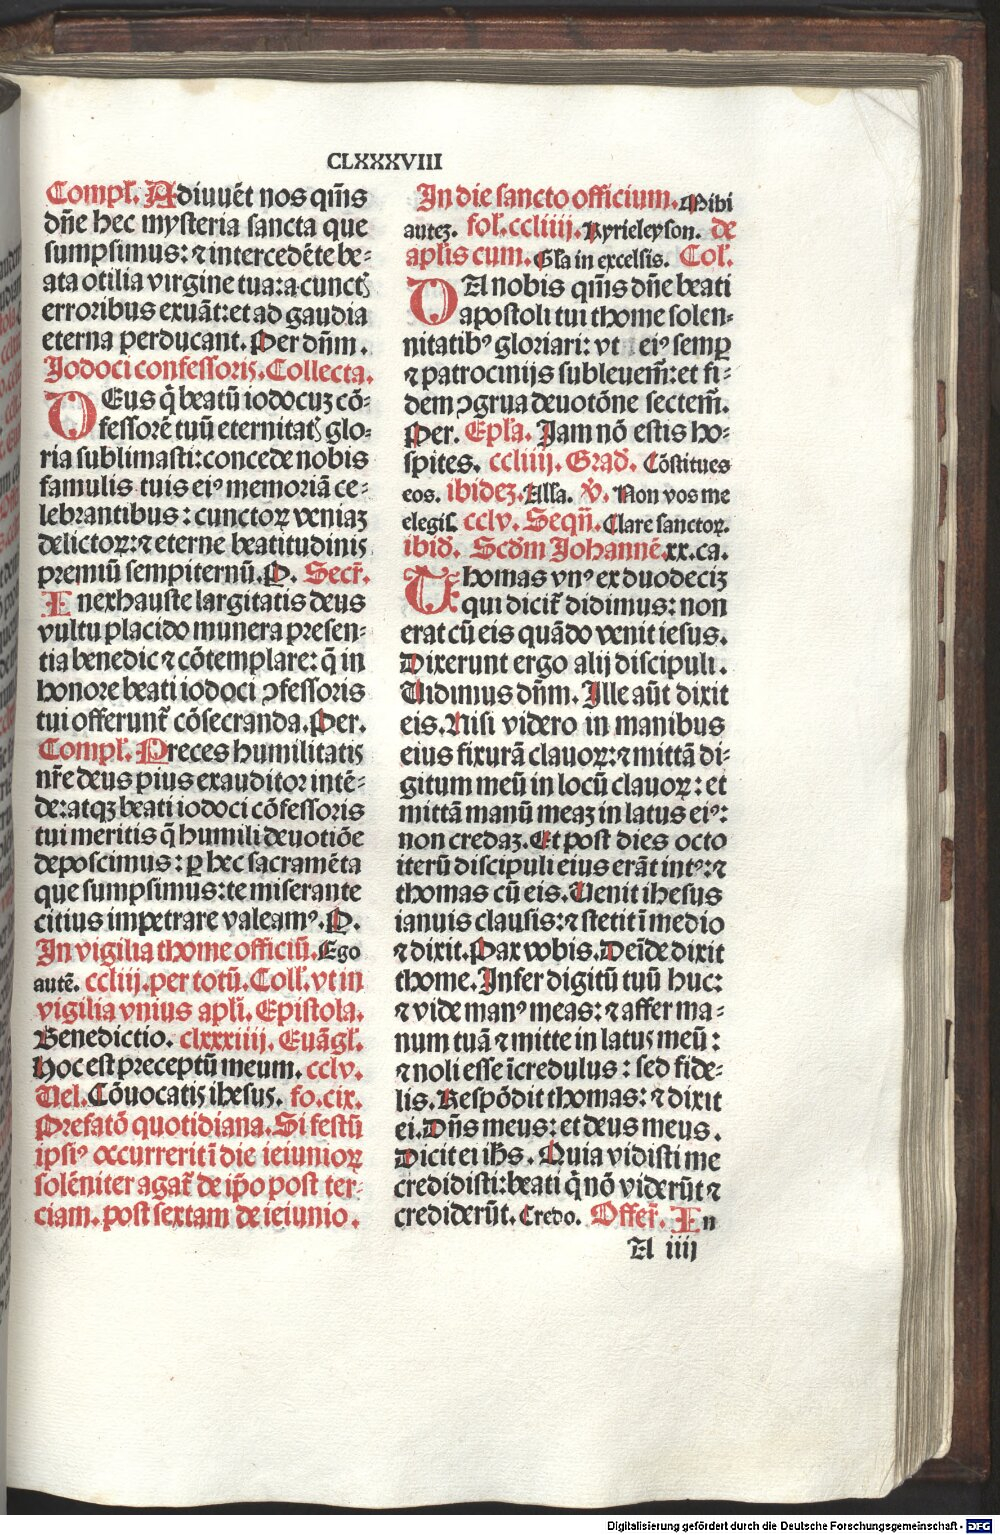 CLXXXVIII
Compl̄. Adiuuēt nos q̄m̄s
dn̄e hec mysteria sancta que
sumpsimus: ⁊ intercedēte be⸗
ata otilia virgine tua: a cunctꝭ
erroribus exuāt: et ad gaudia
eterna perducant. Per dn̄m.
Jodoci confessoris. Collecta.
DEus q̄ beatū iodocuꝫ cō⸗
fessorē tuū eternitatꝭ glo⸗
ria sublimasti: concede nobis
famulis tuis eiꝰ memoriā ce⸗
lebrantibus: cunctoꝝ veniaꝫ
delictoꝝ: ⁊ eterne beatitudinis
premiū sempiternū. P. Secr̄.
Inexhauste largitatis deus
vultu placido munera presen⸗
tia benedic ⁊ cōtemplare: q̄ in
honore beati iodoci ꝯfessoris
tui offerunt᷑ cōsecranda. Per.
Compl̄. Preces humilitatis
nr̄e deus pius exauditor intē⸗
de: atqꝫ beati iodoci cōfessoris
tui meritis q̄ humili deuotiōe
deposcimus: ꝑ hec sacramēta
que sumpsimus: te miserante
citius impetrare valeamꝰ. P.
In vigilia thome officiū. Ego
autē. ccliij. per totū. Coll̄. vt in
vigilia vnius apl̄i. Epistola.
Benedictio. clxxxiiij. Euāgl̄.
Hoc est preceptū meum. cclv.
Uel. Cōuocatis ihesus. fo. cix.
Prefatō quotidiana. Si festū
ipsiꝰ occurrerit ī die ieiunioꝝ
solēniter agat᷑ de ip̄o post ter⸗
ciam. post sextam de ieiunio.
In die sancto officium. Mihi
auteꝫ. fol̄. ccliiij. Kyrieleyson. de
apl̄is cum. Gl̄a in excelsis. Col̄.
DA nobis q̄m̄s dn̄e beati
apostoli tui thome solen⸗
nitatibꝰ gloriari: vt eiꝰ semꝑ
⁊ patrocinijs subleuem᷑: et fi⸗
dem ꝯgrua deuotōne sectem᷑.
Per. Epl̄a. Jam nō estis ho⸗
spites. ccliiij. Grad. Cōstitues
eos. ibideꝫ. All̄a. V̄. Non vos me
elegis. cclv. Seqn̄. Clare sanctoꝝ.
ibid. Scd̄m Johannē. xx. ca.
Thomas vnꝰ ex duodeciꝫ
qui dicit᷑ didimus: non
erat cū eis quādo venit iesus.
Dixerunt ergo alij discipuli.
Uidimus dn̄m. Ille aūt dixit
eis. Nisi videro in manibus
eius fixurā clauoꝝ: ⁊ mittā di⸗
gitum meū in locū clauoꝝ: et
mittā manū meaꝫ in latus eiꝰ:
non credaꝫ. Et post dies octo
iterū discipuli eius erāt intꝰ: ⁊
thomas cū eis. Uenit ihesus
ianuis clausis: ⁊ stetit ī medio
⁊ dixit. Pax vobis. Deīde dixit
thome. Infer digitū tuū huc:
⁊ vide manꝰ meas: ⁊ affer ma⸗
num tuā ⁊ mitte in latus meū:
⁊ noli esse īcredulus: sed fide⸗
lis. Respōdit thomas: ⁊ dixit
ei. Dn̄s meus: et deus meus.
Dicit ei ih̄s. Quia vidisti me
credidisti: beati q̄ nō viderūt ⁊
crediderūt. Credo. Offer̄. In
A iiij
Digitalisierung gefördert durch die Deutsche Forschungsgemeinschaft - DFG